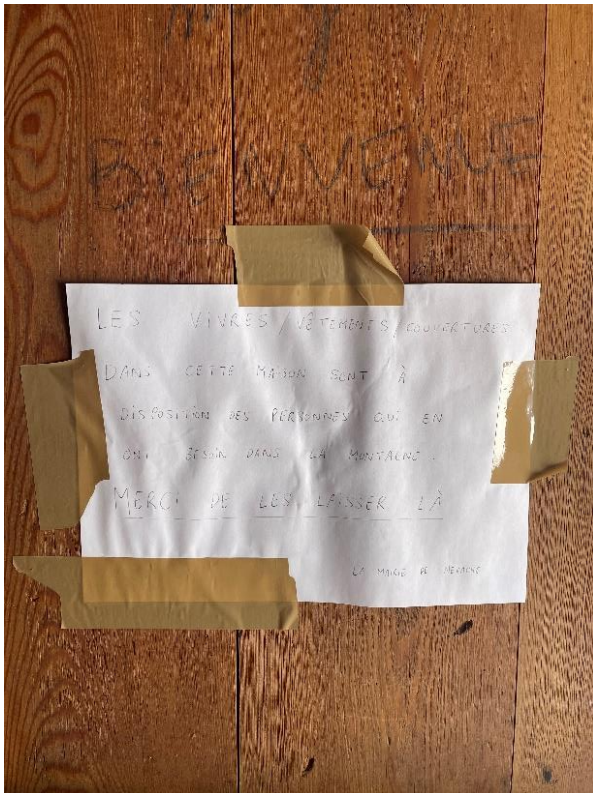 BIENVENUE
LES VIVRES / VÊTEMENTS / COUVERTURES
DANS CETTE MAISON SONT À
DISPOSITION DES PERSONNES QUI EN
ONT BESOIN DANS LA MONTAGNE.
MERCI DE LES LAISSER LÀ
LA MAIRIE DE NÉVACHE